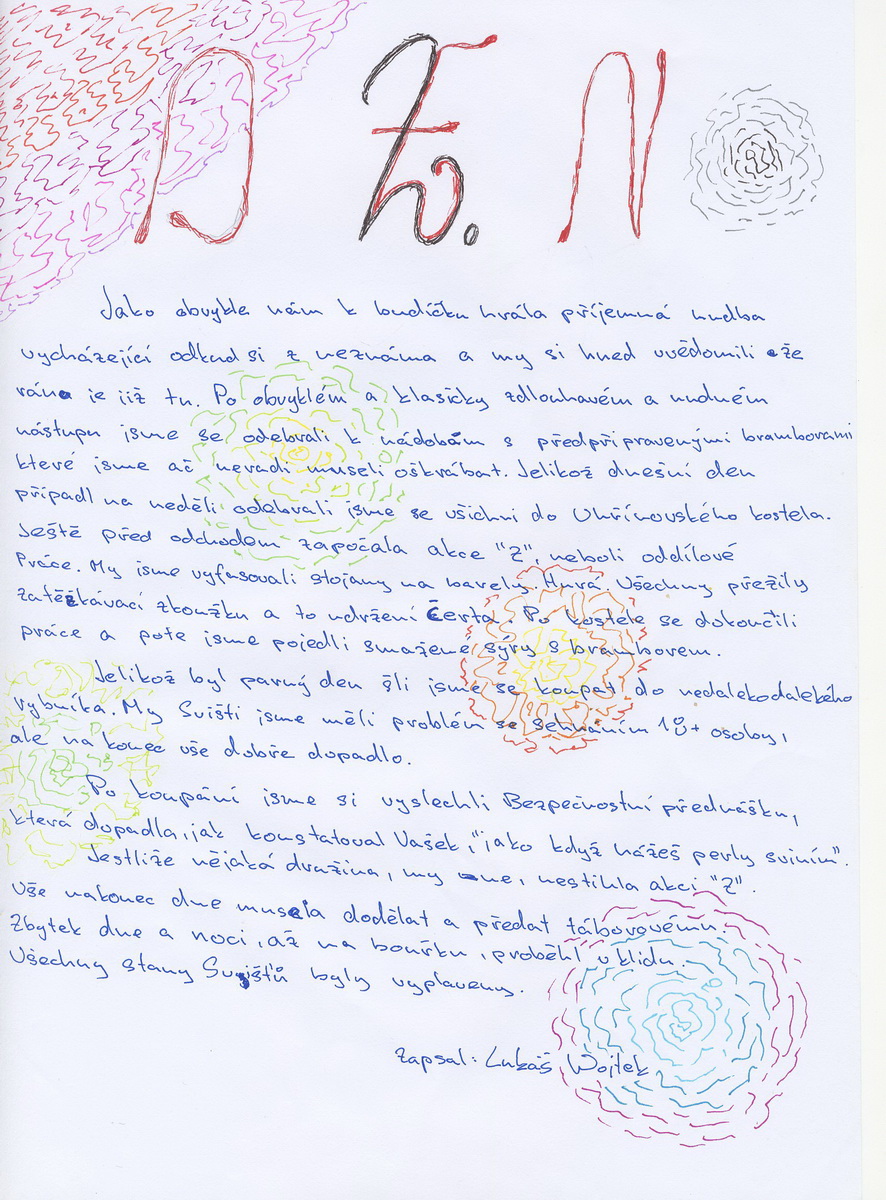 D Z. N
Jako obvykle nám k budíčku hrála příjemná hudba
vycházející odkud si z neznáma a my si hned uvědomili že
ráno je již tu. Po obvyklém a klasicky zdlouhavém a nudném
nástupu jsme se odebrali k nádobám s předpřipravenými bramborami
které jsme ač neradi museli oškrábat. Jelikož dnešní den
připadl na neděli odebrali jsme se všichni do Uhřínovského kostela.
Ještě před odchodem započala akce "Z", neboli oddílové
Práce. My jsme vyfasovali stojany na barely. Hurá Všechny přežily
zatěžkávací zkoužku a to udržení Čerta. Po kostele se dokončili
práce a pote jsme pojedli smažené sýry s bramborem.
Jelikož byl parný den šli jsme se koupat do nedalekodalekého
rybníka. My Svišti jsme měli problém se sehnáním 18+ osoby,
ale nakonec vše dobře dopadlo.
Po koupání jsme si vyslechli Bezpečnostní přednášku,
která dopadla, jak konstatoval Vašek, "jako když házeš perly sviním".
Jestliže nějaká družina, my ne, nestihla akci "Z".
Vše nakonec dne musela dodělat a předat táborovému.
Zbytek dne a noci, až na bouřku, proběhl v klidu.
Všechny stany Svišťů byly vyplaveny.
Zapsal: Lukáš Wojtek